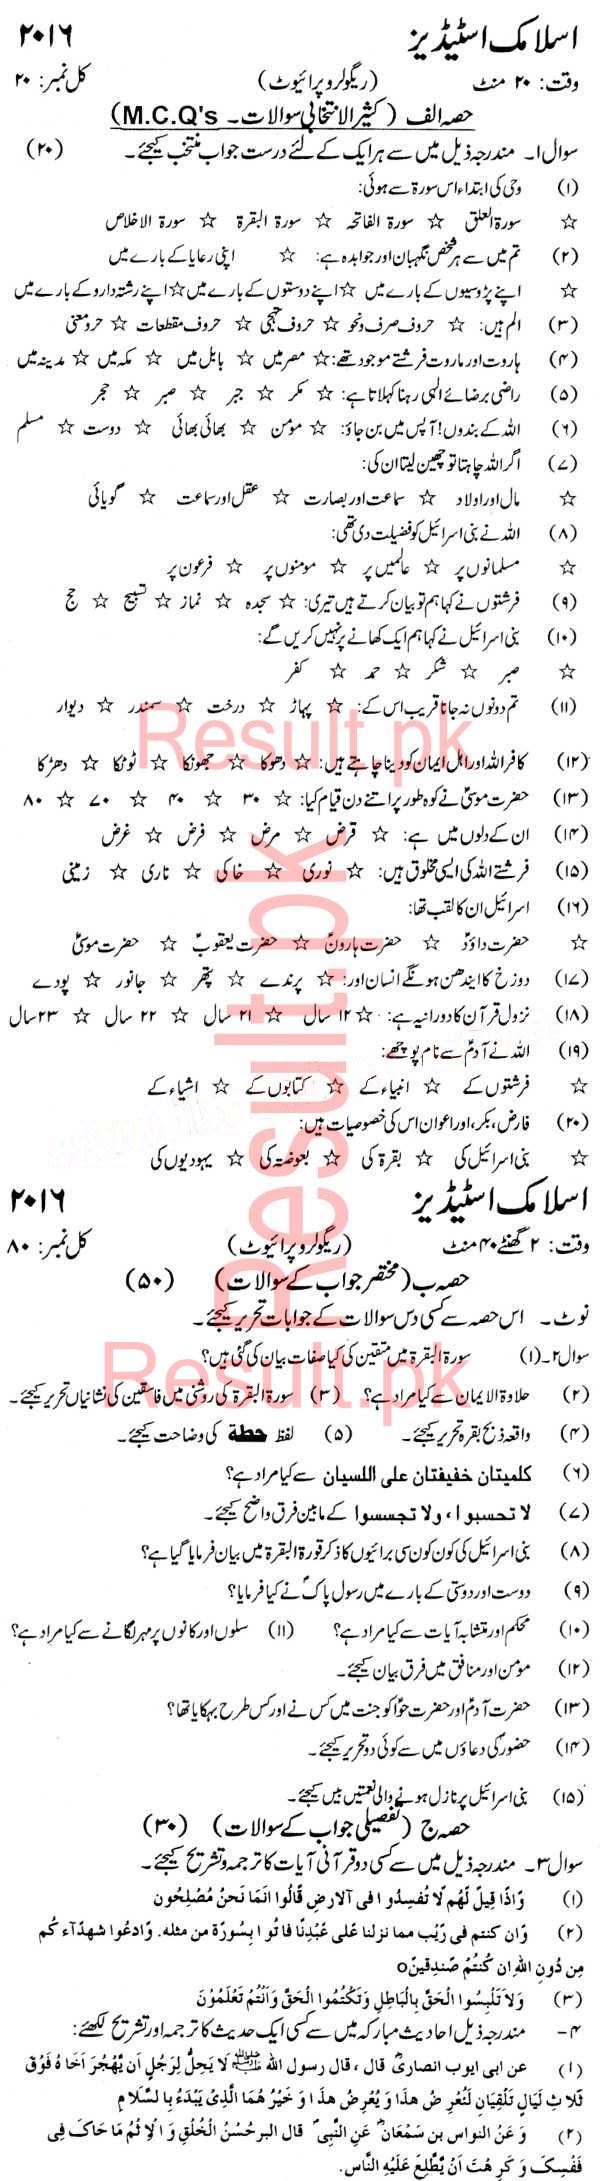 اسلامک اسٹیڈیز ۲۰۱۶
وقت: ۲۰ منٹ (ریگولر و پرائیوٹ) کل نمبر: ۲۰
حصہ الف (کثیر الانتخابی سوالات۔ M.C.Q's)
سوال۱۔ مندرجہ ذیل میں سے ہر ایک کے لئے درست جواب منتخب کیجئے۔ (۲۰)
(۱) وحی کی ابتداء اس سورۃ سے ہوئی:
☆ سورۃ العلق ☆ سورۃ الفاتحہ ☆ سورۃ البقرۃ ☆ سورۃ الاخلاص
(۲) تم میں سے ہر شخص نگہبان اور جوابدہ ہے: ☆ اپنی رعایا کے بارے میں
☆ اپنے پڑوسیوں کے بارے میں ☆ اپنے دوستوں کے بارے میں ☆ اپنے رشتہ داروں کے بارے میں
(۳) الم ہیں: ☆ حروف صرف و نحو ☆ حروف تہجی ☆ حروف مقطعات ☆ حرو معنی
(۴) ہاروت اور ماروت فرشتے موجود تھے: ☆ مصر میں ☆ بابل میں ☆ مکہ میں ☆ مدینہ میں
(۵) راضی برضائے الٰہی رہنا کہلاتا ہے: ☆ مکر ☆ جبر ☆ صبر ☆ حجر
(۶) اللہ کے بندوں! آپس میں بن جاؤ: ☆ مؤمن ☆ بھائی بھائی ☆ دوست ☆ مسلم
(۷) اگر اللہ چاہتا تو چھین لیتا ان کی:
☆ مال اور اولاد ☆ سماعت اور بصارت ☆ عقل اور سماعت ☆ گویائی
(۸) اللہ نے بنی اسرائیل کو فضیلت دی تھی:
☆ مسلمانوں پر ☆ عالمین پر ☆ مومنوں پر ☆ فرعون پر
(۹) فرشتوں نے کہا ہم تو بیان کرتے ہیں تیری: ☆ سجدہ ☆ نماز ☆ تسبیح ☆ حج
(۱۰) بنی اسرائیل نے کہا ہم ایک کھانے پر نہیں کریں گے:
☆ صبر ☆ شکر ☆ حمد ☆ کفر
(۱۱) تم دونوں نہ جانا قریب اس کے: ☆ پہاڑ ☆ درخت ☆ سمندر ☆ دیوار
(۱۲) کافر اللہ اور اہل ایمان کو دینا چاہتے ہیں: ☆ دھوکا ☆ جھونکا ☆ ٹوٹکا ☆ دھڑکا
(۱۳) حضرت موسیٰؑ نے کوہ طور پر اتنے دن قیام کیا: ☆ ۳۰ ☆ ۴۰ ☆ ۷۰ ☆ ۸۰
(۱۴) ان کے دلوں میں ہے: ☆ قرض ☆ مرض ☆ فرض ☆ غرض
(۱۵) فرشتے اللہ کی ایسی مخلوق ہیں: ☆ نوری ☆ خاکی ☆ ناری ☆ زمینی
(۱۶) اسرائیل ان کا لقب تھا:
☆ حضرت داؤدؑ ☆ حضرت ہارونؑ ☆ حضرت یعقوبؑ ☆ حضرت موسیٰؑ
(۱۷) دوزخ کا ایندھن ہونگے انسان اور: ☆ پرندے ☆ پتھر ☆ جانور ☆ پودے
(۱۸) نزول قرآن کا دورانیہ ہے: ☆ ۱۲ سال ☆ ۲۱ سال ☆ ۲۲ سال ☆ ۲۳ سال
(۱۹) اللہ نے آدمؑ سے نام پوچھے:
☆ فرشتوں کے ☆ انبیاء کے ☆ کتابوں کے ☆ اشیاء کے
(۲۰) فارض، بکر، اور اعوان اس کی خصوصیات ہیں:
☆ بنی اسرائیل کی ☆ بقرۃ کی ☆ بعوضۃ کی ☆ یہودیوں کی
اسلامک اسٹیڈیز ۲۰۱۶
وقت: ۲ گھنٹے ۴۰ منٹ (ریگولر و پرائیوٹ) کل نمبر: ۸۰
حصہ ب (مختصر جواب کے سوالات) (۵۰)
نوٹ۔ اس حصہ سے کسی دس سوالات کے جوابات تحریر کیجئے۔
سوال ۲۔(۱) سورۃ البقرۃ میں متقین کی کیا صفات بیان کی گئی ہیں؟
(۲) حلاوۃ الایمان سے کیا مراد ہے؟ (۳) سورۃ البقرۃ کی روشنی میں فاسقین کی نشانیاں تحریر کیجئے۔
(۴) واقعہ ذبح بقرہ تحریر کیجئے۔ (۵) لفظ حطة کی وضاحت کیجئے۔
(۶) کلمیتان خفیفتان علی اللسیان سے کیا مراد ہے؟
(۷) لا تحسبوا، ولا تجسسوا کے مابین فرق واضح کیجئے۔
(۸) بنی اسرائیل کی کون کون سی برائیوں کا ذکر قورۃ البقرۃ میں بیان فرمایا گیا ہے؟
(۹) دوست اور دوستی کے بارے میں رسول پاکؐ نے کیا فرمایا؟
(۱۰) محکم اور متشابہ آیات سے کیا مراد ہے؟ (۱۱) سلوں اور کانوں پر مہر لگانے سے کیا مراد ہے؟
(۱۲) مؤمن اور منافق میں فرق بیان کیجئے۔
(۱۳) حضرت آدمؑ اور حضرت حوّا کو جنت میں کس نے اور کس طرح بہکایا تھا؟
(۱۴) حضورؐ کی دعاؤں میں سے کوئی دو تحریر کیجئے۔
(۱۵) بنی اسرائیل پر نازل ہونے والی نعمتیں بیں کیجئے۔
حصہ ج (تفصیلی جواب کے سوالات) (۳۰)
سوال ۳۔ مندرجہ ذیل میں سے کسی دو قرآنی آیات کا ترجمہ و تشریح کیجئے۔
(۱) وَاذَا قِيلَ لَهُم لَا تُفسِدُوا فی الارضِ قَالُوا انَمَا نَحنُ مُصلِحُون
(۲) وَان کنتم فی رَیْب مما نزلنا عَلٰی عَبْدِنَا فا تُوا بِسُورَة من مثله. وَادعُوا شھدآء کُم
مِن دُونِ اللهِ ان کُنتُم صٰدِقِینَ o
(۳) وَلَا تَلْبِسُوا الْحَقَّ بِالْبَاطِلِ وَتَكْتُمُوا الْحَقَّ وَاَنْتُمْ تَعْلَمُوْنَ
۴- مندرجہ ذیل احادیث مبارکہ میں سے کسی ایک حدیث کا ترجمہ اور تشریح لکھئے:
(۱) عن ابی ایوب انصاریؓ قال، قال رسول اللہ ﷺ لَا یَحِلُّ لِرَجُلٍ اَن یَّھْجُرَ اَخَاہُ فَوْقَ
ثَلَاثِ لَیَالٍ تَلْقِیَانِ لَنُعْرِضُ ھٰذَا وَ یُعْرِضُ ھٰذَا وَ خَیْرُ ھُمَا الَّذِی یَبْدَءُ بِالسَّلَامِ
(۲) وَ عَنُ النواس بن سَمْعَانؓ عَنِ النَّبِیؐ قال البر حُسْنُ الْخُلُقِ وَ الْاِثْمُ مَا حَاکَ فِی
نَفْسِکَ وَ کَرِھْتَ اَنْ یَّطَّلِعَ عَلَیْهِ النَّاسُ.
Result.pk
Result.pk
Result.pk